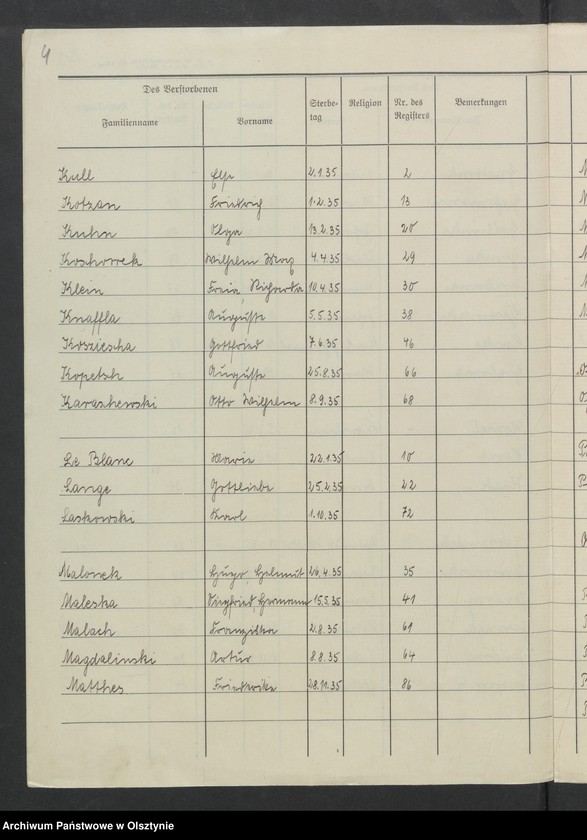 4
Des Verstorbenen
Familienname Vorname Sterbe- tag Religion Nr. des Registers Bemerkungen
Kull 2.1.35 2
Kotzan Friedrich 1.2.35 13
Kuhn Olga 13.2.35 20
Koschorrek Wilhelm 4.4.35 29
Klein 10.4.35 30
Knaffla Auguste 5.5.35 38
Kosziescha Gottfried 7.6.35 46
Kopetsch Auguste 25.8.35 66
Karaschewski Otto Wilhelm 8.9.35 68
Le Blanc Marie 22.1.35 10
Lange Gottliebe 25.2.35 22
Laskowski Karl 1.10.35 72
Malonek Hugo Helmut 26.4.35 35
Maleska Siegfried Hermann 15.5.35 41
Malach Franziska 2.8.35 61
Magdalinski Artur 8.8.35 64
Matthes Friederike 28.11.35 86
Archiwum Państwowe w Olsztynie